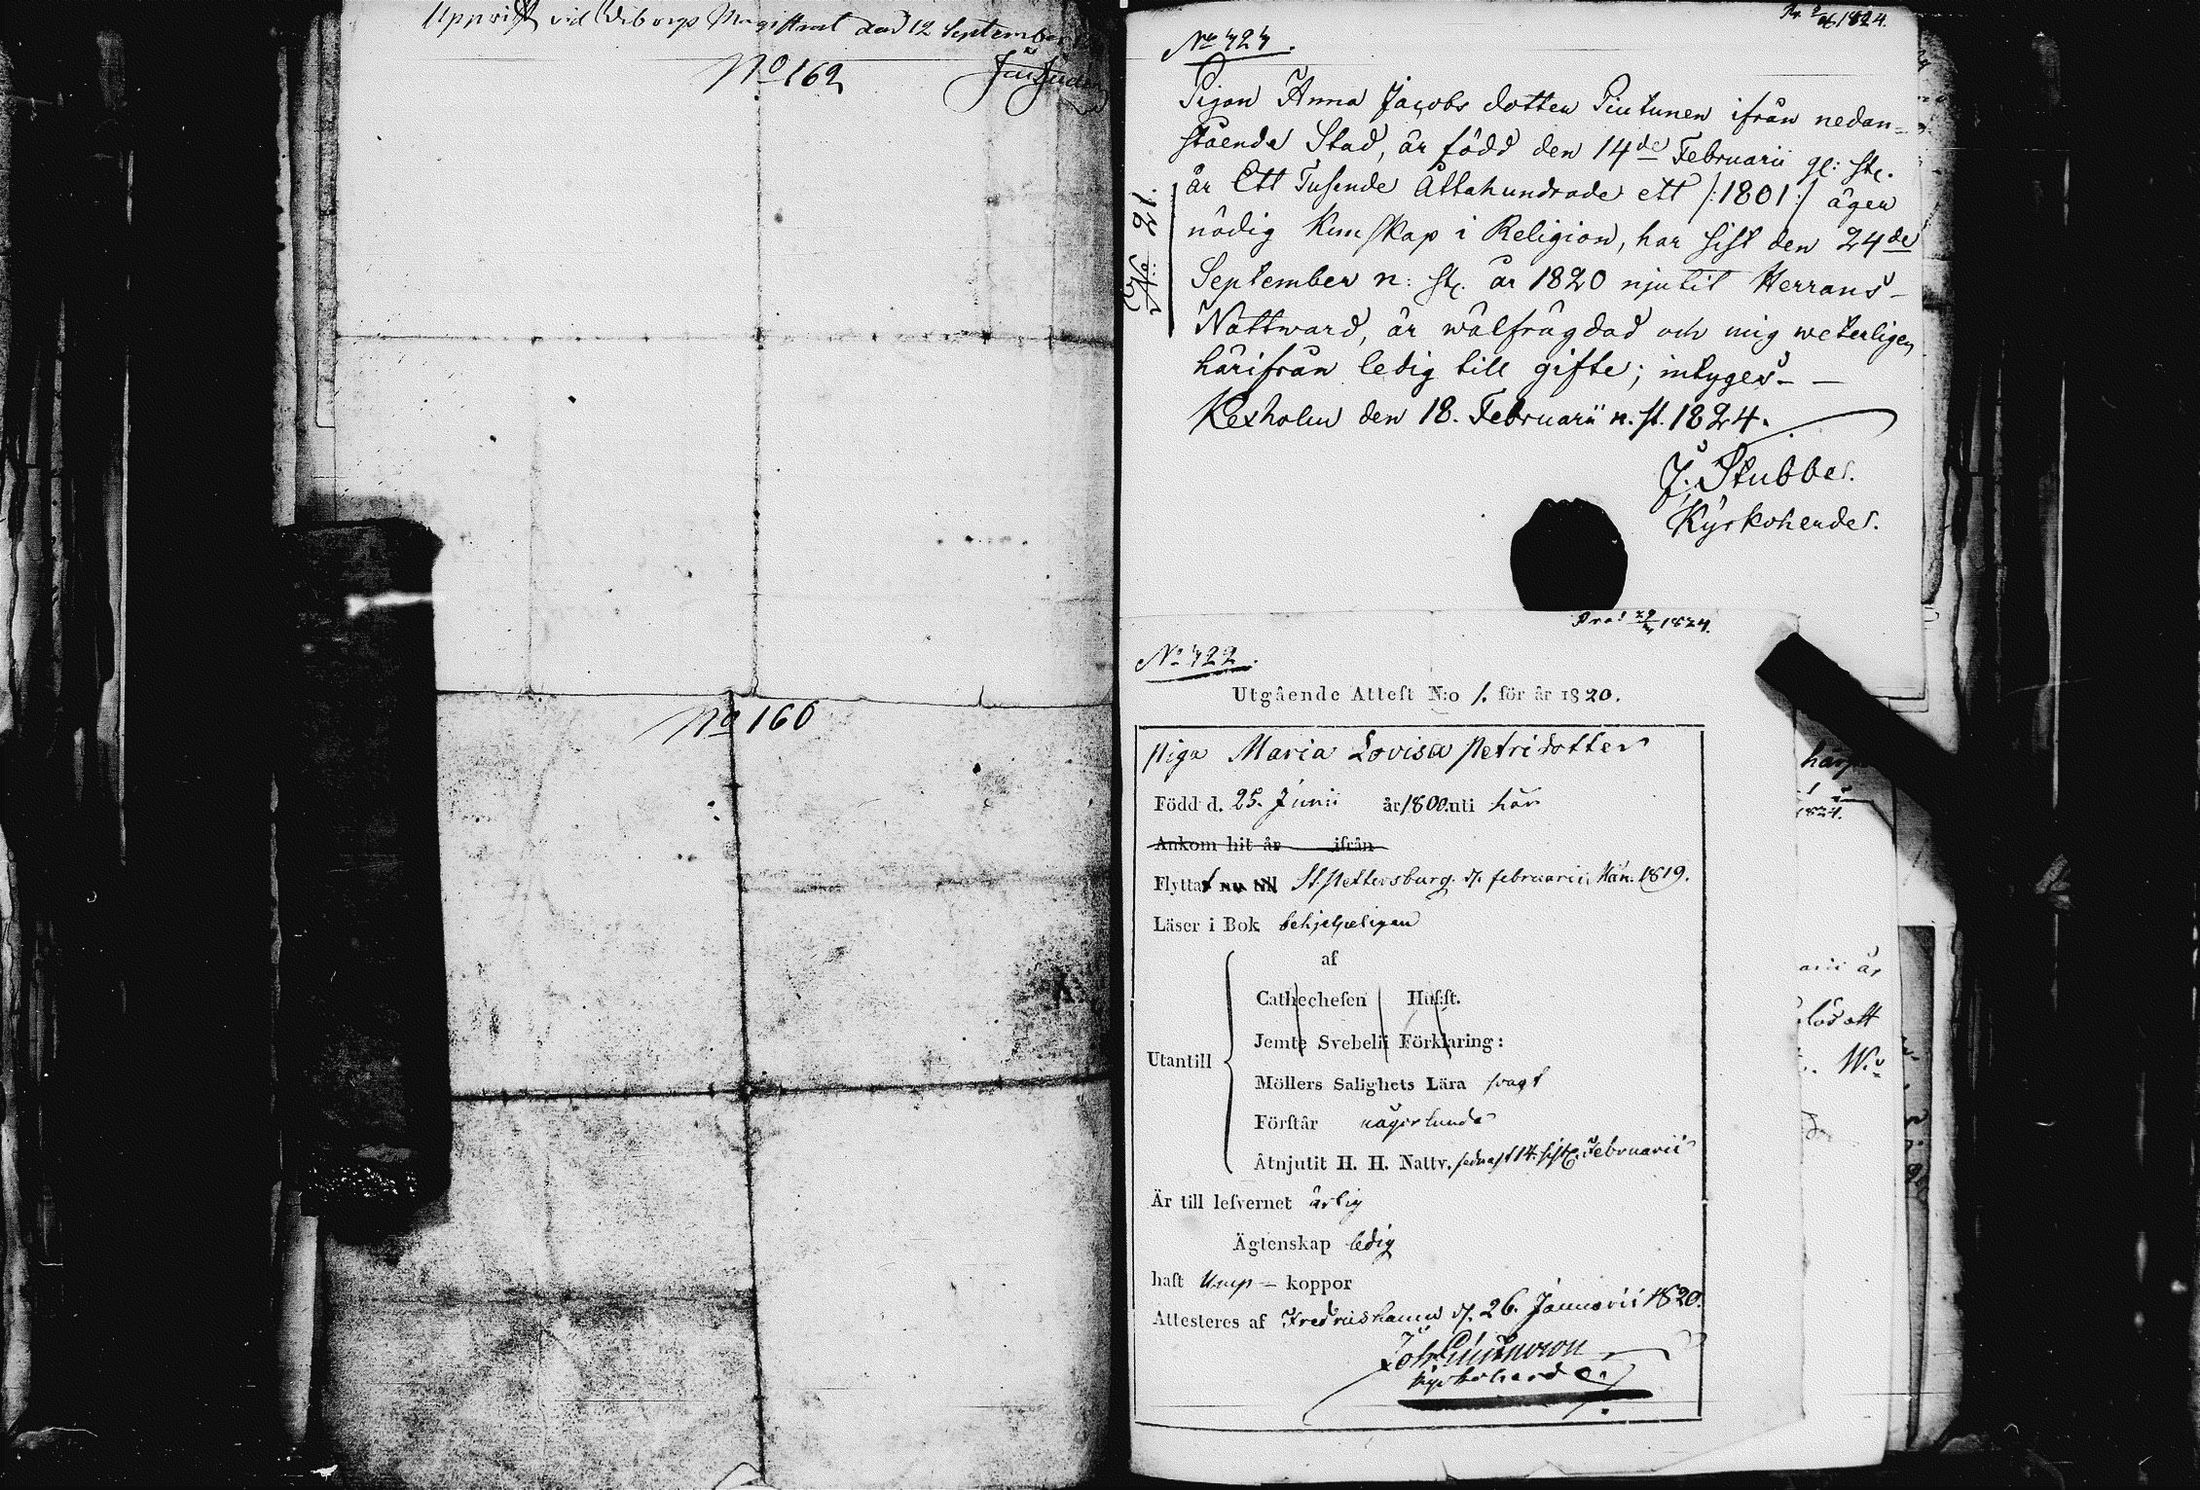 Uppvist vid Wiborgs Magistrat den 12 September
No 162
No 160
1824.
No 424.
Pigan Anna Jacobs dotter Piutunen ifrån nedan=
stående Stad, är född den 14de Februarii gl: st.
år Ett Tusende Åttahundrade ett /:1801:/ äger
nödig Kunskap i Religion, har sist den 24de
September n: st. år 1820 njutit Herrans
Nattward, är wälfrägdad och mig weterligen
härifrån ledig till gifte; intyges
Kexholm den 18. Februarii n. st. 1824.
J. Stubbe.
Kyrkoherde.
No: 21.
1824.
No 422.
Utgående Attest N:o 1. för år 1820.
Piga Maria Lovisa Petridotter
Född d. 25. Junii år 1800. uti här
Ankom hit år ifrån
Flyttat nu till St. Pettersburg. d. februarii Mån. 1819.
Läser i Bok behjelpeligen
af
Cathechesen Hus:st.
Jemte Svebelii Förklaring:
Utantill
Möllers Salighets Lära svagt
Förstår någorlunda
Åtnjutit H. H. Nattv. sednast 14. sistl. Februarii
Är till lefvernet ärlig
Ägtenskap ledig
haft Ymp- koppor
Attesteres af Fredrichshamn d. 26. Januarii 1820.
Kyrkoherde.